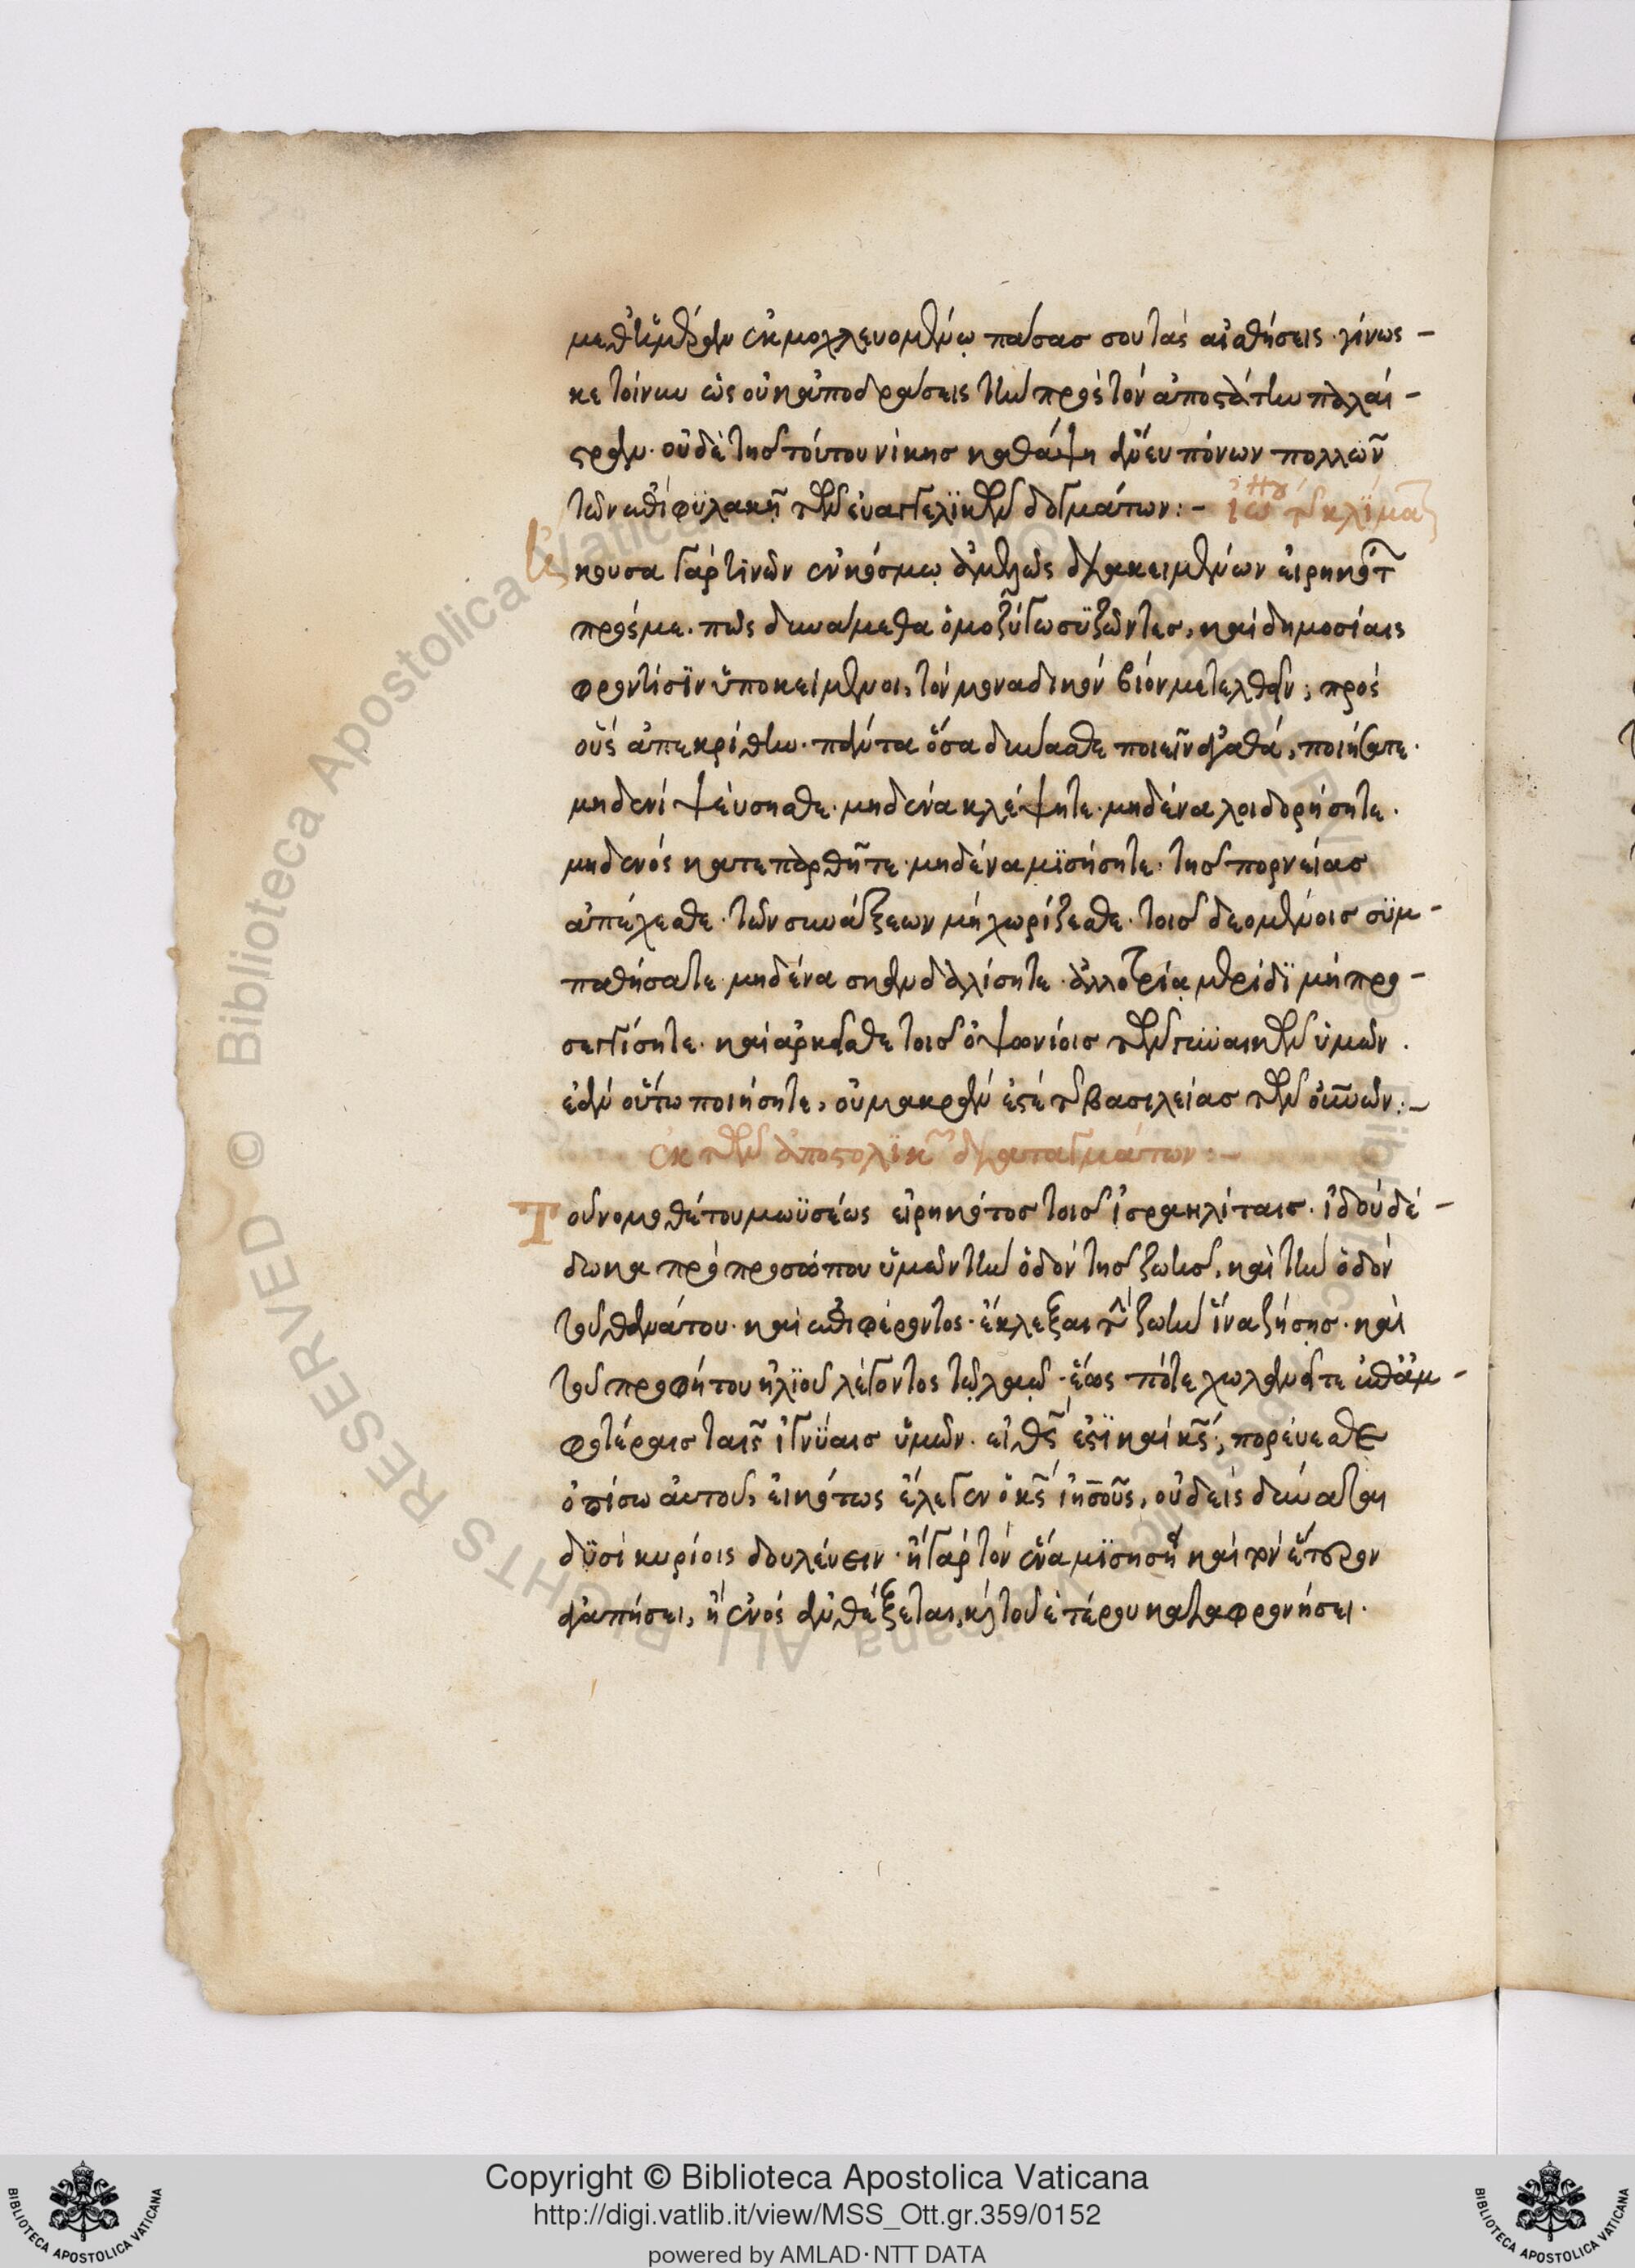 πάσας σου τὰς αἰσθήσεις. γίνωσ-
κε τοίνυν ὡς οὐκ ἀποδράσεις τὴν πρὸς τὸν ἀποστάτην παλαί-
στραν. οὐδὲ τῆς τούτου νίκης καθάψη ἄνευ πόνων πολλῶν
τῶν ἐπὶ φϋλακῆ τῶν εὐαγγελϊκῶν δογμάτων:- ἰω τῆς κλίμα
ἤκουσα γάρ τινῶν ἐν κόσμω ἀμελῶς διακειμένων εἰρηκότ
πρός με. πῶς δυνάμεθα ὁμοζύγω συζῶντες, καὶ δημοσίαις
φροντίσϊν ὑποκείμενοι, τὸν μοναδικὸν βίον μετελθεῖν; πρὸς
οὓς ἀπεκρίθην. πάντα ὅσα δύνασθε ποιεῖν ἀγαθά, ποιήσατε.
μηδενὶ ψεύσησθε. μηδένα κλέψητε. μηδένα λοιδορήσητε.
μηδενὸς κατεπαρθῆτε. μηδένα μϊσήσητε. τῆς πορνείας
ἀπέχεσθε. τῶν συνάξεων μὴ χωρίζεσθε. τοῖς δεομένοις σϋμ-
παθήσατε. μηδένα σκανδαλίσητε. ἀλλοτρία μερίδϊ μὴ προ-
σεγγίσητε. καὶ ἀρκεῖσθε τοῖς ὀψωνίοις τῶν γυναικῶν ὑμῶν.
ἐὰν οὕτω ποιήσητε, οὐ μακρὰν ἐστὲ τῆς βασιλείας τῶν οὐνῶν:-
ἐκ τῶν ἀποστολϊκ διαταγμάτων:-
Τοῦ νομοθέτου μωϋσέως εἰρηκότος τοῖς ἰσραηλίταις. ἰδοὺ δέ-
δωκα πρὸ προσώπου ὑμῶν τὴν ὁδὸν τῆς ζωῆς, καὶ τὴν ὁδὸν
τοῦ θανάτου. καὶ ἐπιφέροντος. ἔκλεξαι τὴν ζωὴν ἵνα ζήσης. καὶ
τοῦ προφήτου ἠλϊοῦ λέγοντος τῶ λαῶ. ἕως πότε χωλανεῖτε ἐπ' ἀμ-
φοτέραις ταῖς ἰγνύαις ὑμῶν. εἰ θς ἐστϊ καὶ κς, πορεύεσθε
ὀπίσω αὐτοῦ, εἰκότως ἔλεγεν ὁ κς ἰησοῦς, οὐδεὶς δύναται
δϋσὶ κυρίοις δουλεύειν. ἢ γὰρ τὸν ἕνα μϊσήσει καὶ τὸν ἕτερον
ἀγαπήσει, ἢ ἑνὸς ἀνθέξεται, κ τοῦ ἑτέρου καταφρονήσει.
Copyright © Biblioteca Apostolica Vaticana
http://digi.vatlib.it/view/MSS_Ott.gr.359/0152
powered by AMLAD·NTT DATA